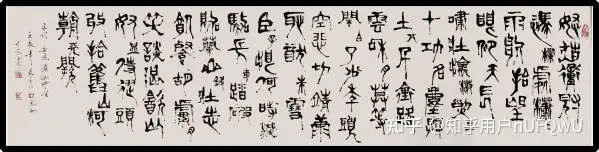 怒髮衝冠
憑欄處瀟瀟
雨歇抬望
眼仰天長
嘯壯懷激烈三
十功名塵與
土八千里路
雲和月莫等
閒白少年頭
空悲切靖康
恥猶未雪
臣子恨何時滅
駕長車踏破
賀蘭山缺壯志
飢餐胡虜肉
笑談渴飲匈
奴血待從頭
收拾舊山河
朝天闕
知乎 @知乎用户nUFQWU